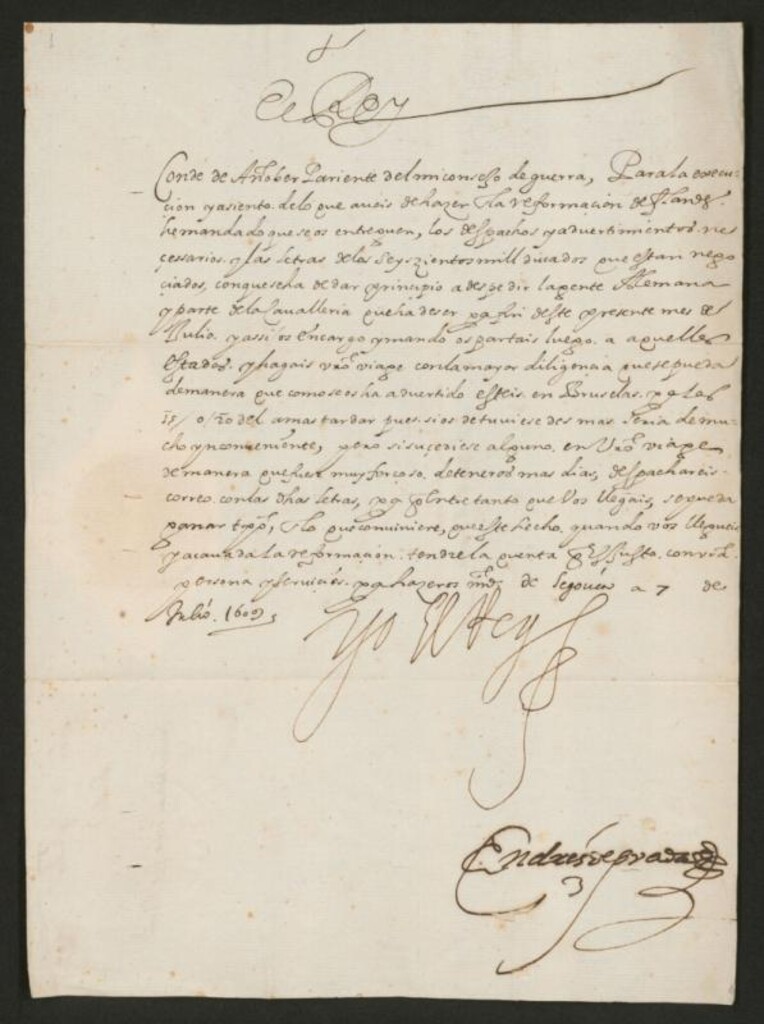 El Rey
Conde de Añober Pariente del mi consejo de guerra, Para la execu-
cion y asiento de lo que aveis de hazer en la reformacion de flandes
he mandado que se os entreguen, los despachos y advertimientos ne
cessarios y las letras de los seyszientos mill ducados que estan nego
ciados, con que se ha de dar principio a despedir la gente Alemana
y parte de la cavalleria que ha de ser pª fin deste presente mes de
Julio y assi os encargo y mando os partais luego a aquellos
estados y hagais vrō viage con la mayor diligencia que se pueda
de manera que como se os ha advertido esteis en Bruselas pª los
15/ o/20 del a mas tardar pues si os detuviesedes mas seria de mu-
cho ynconveniente, pero si sucediese alguno en vrō viage
de manera que fuese muy forçoso deteneros mas dias, despachareis
correo con las dhas letras, pª q entre tanto que vos llegais, se pueda
ganar tpō, en lo que conviniere, que este hecho quando vos llegueis
y acavada la reformacion tendre la quenta q es justo con vrā
persona y servicios pª hazeros mrd de Segovia a 7 de
Julio 1609
Yo El Rey
Andres de prada